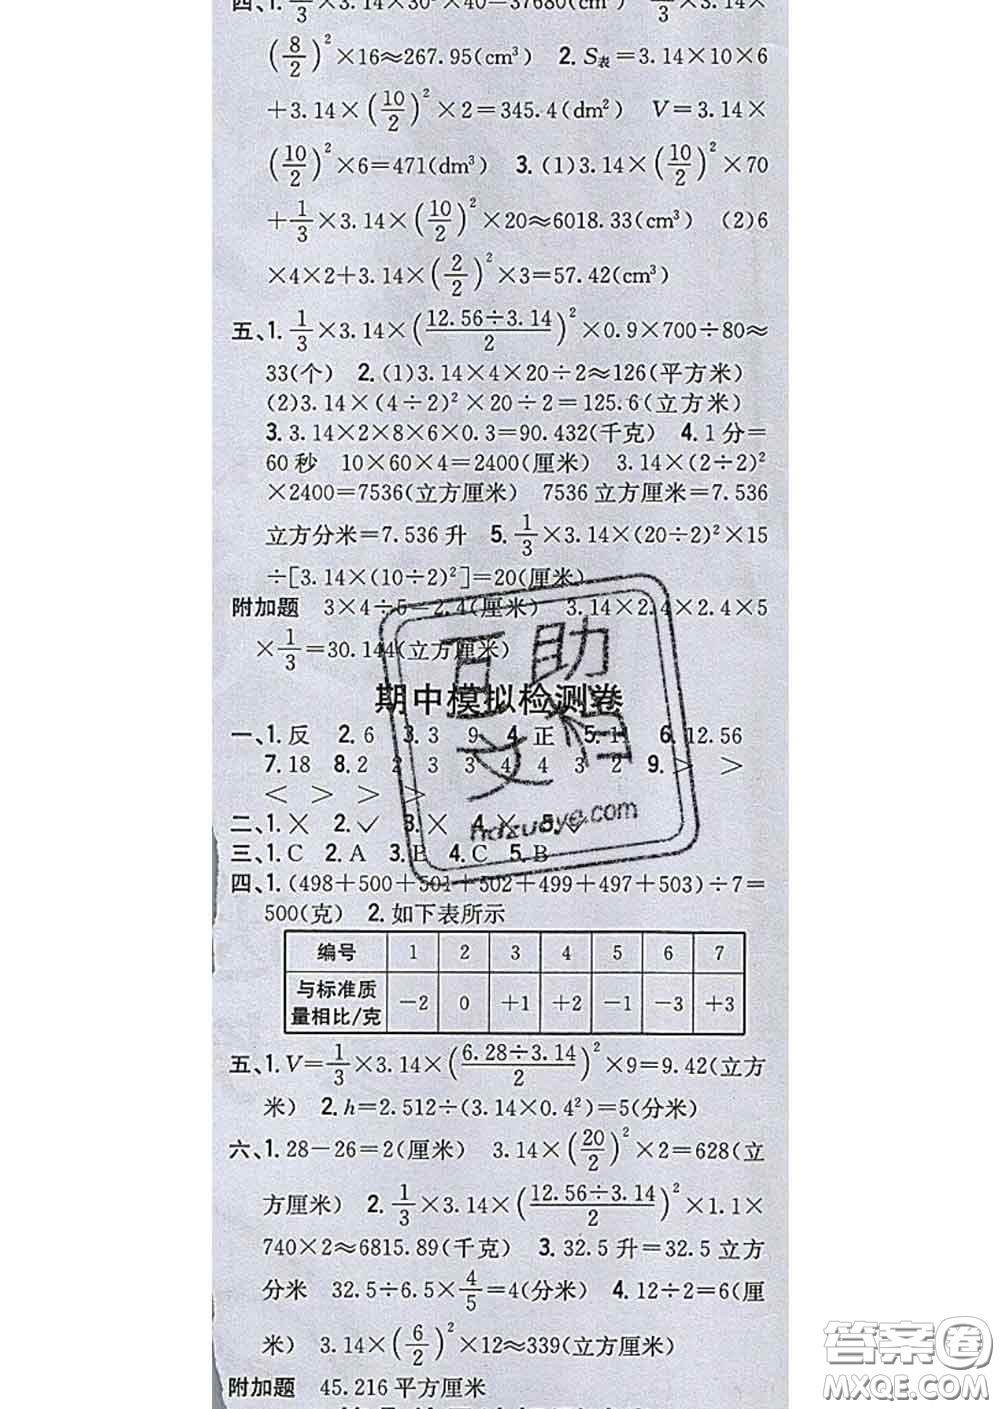 四、1. 1/3×3.14×30²×40=37680(cm³) 1/3×3.14×
(8/2)²×16≈267.95(cm³) 2. S表=3.14×10×6
+3.14×(10/2)²×2=345.4(dm²) V=3.14×
(10/2)²×6=471(dm³) 3. (1)3.14×(10/2)²×70
+1/3×3.14×(10/2)²×20≈6018.33(cm³) (2)6
×4×2+3.14×(2/2)²×3=57.42(cm³)
五、1. 1/3×3.14×((12.56÷3.14)/2)²×0.9×700÷80≈
33(个) 2. (1)3.14×4×20÷2≈126(平方米)
(2)3.14×(4÷2)²×20÷2=125.6(立方米)
3. 3.14×2×8×6×0.3=90.432(千克) 4. 1分=
60秒 10×60×4=2400(厘米) 3.14×(2÷2)²
×2400=7536(立方厘米) 7536立方厘米=7.536
立方分米=7.536升 5. 1/3×3.14×(20÷2)²×15
÷[3.14×(10÷2)²]=20(厘米)
附加题 3×4÷5=2.4(厘米) 3.14×2.4×2.4×5
×1/3=30.144(立方厘米)
期中模拟检测卷
一、1. 反 2. 6 3. 3 9 4. 正 5. 11 6. 12.56
7. 18 8. 2 2 3 3 4 4 3 2 9. > >
< > > >
二、1. × 2. ✓ 3. × 4. × 5. ✓
三、1. C 2. A 3. B 4. C 5. B
四、1. (498+500+501+502+499+497+503)÷7=
500(克) 2. 如下表所示
编号 1 2 3 4 5 6 7
与标准质量相比/克 -2 0 +1 +2 -1 -3 +3
五、1. V=1/3×3.14×((6.28÷3.14)/2)²×9=9.42(立方
米) 2. h=2.512÷(3.14×0.4²)=5(分米)
六、1. 28-26=2(厘米) 3.14×(20/2)²×2=628(立
方厘米) 2. 1/3×3.14×((12.56÷3.14)/2)²×1.1×
740×2≈6815.89(千克) 3. 32.5升=32.5立方
分米 32.5÷6.5×4/5=4(分米) 4. 12÷2=6(厘
米) 3.14×(6/2)²×12≈339(立方厘米)
附加题 45.216平方厘米
互助
文档
hdzuoye.com
答案圈
MXQE.COM